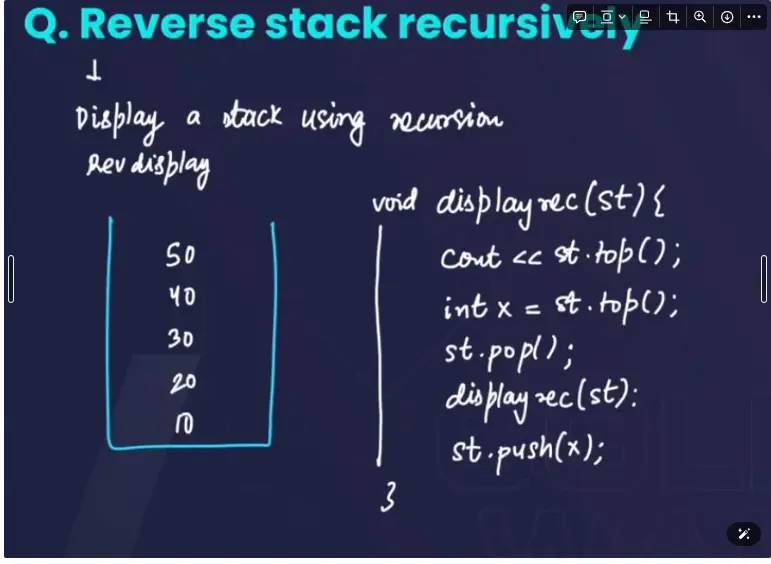 Q. Reverse stack recursively
Display a stack using recursion
Rev display
50
40
30
20
10
void displayrec(st){
cout << st.top();
int x = st.top();
st.pop();
displayrec(st);
st.push(x);
}